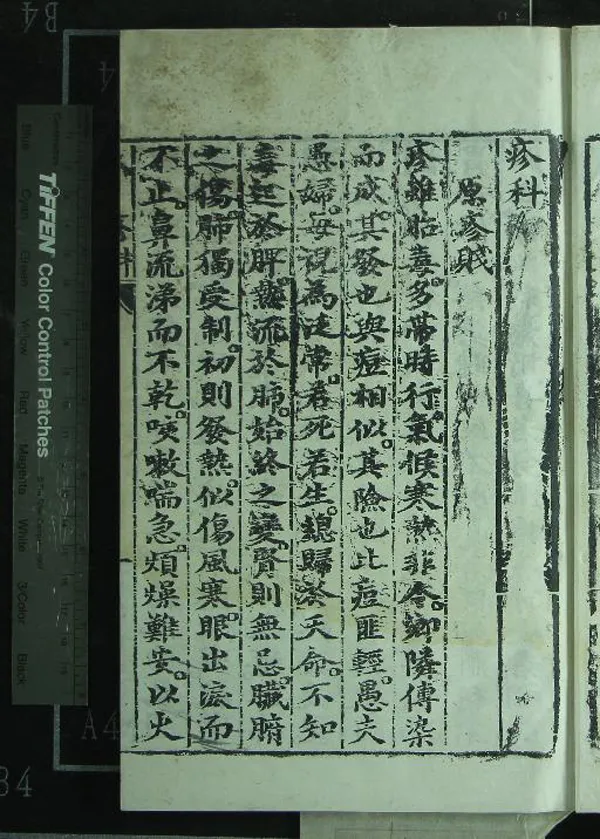 疹科
原疹賦
疹雖胎毒多帶時行氣候寒熱非令鄉隣傳染
而成其發也與痘相似其險也比痘匪輕愚夫
愚婦每視為泛常若死若生總歸於天命不知
毒起於脾熱流於肺始終之變腎則無忌臟腑
之傷肺獨受制初則發熱似傷風寒眼出淚而
不止鼻流涕而不乾咳嗽喘急煩燥難安以火
TIFFEN Color Control Patches
Blue Cyan Green Yellow Red Magenta White 3/Color Black
B4
A4
B4